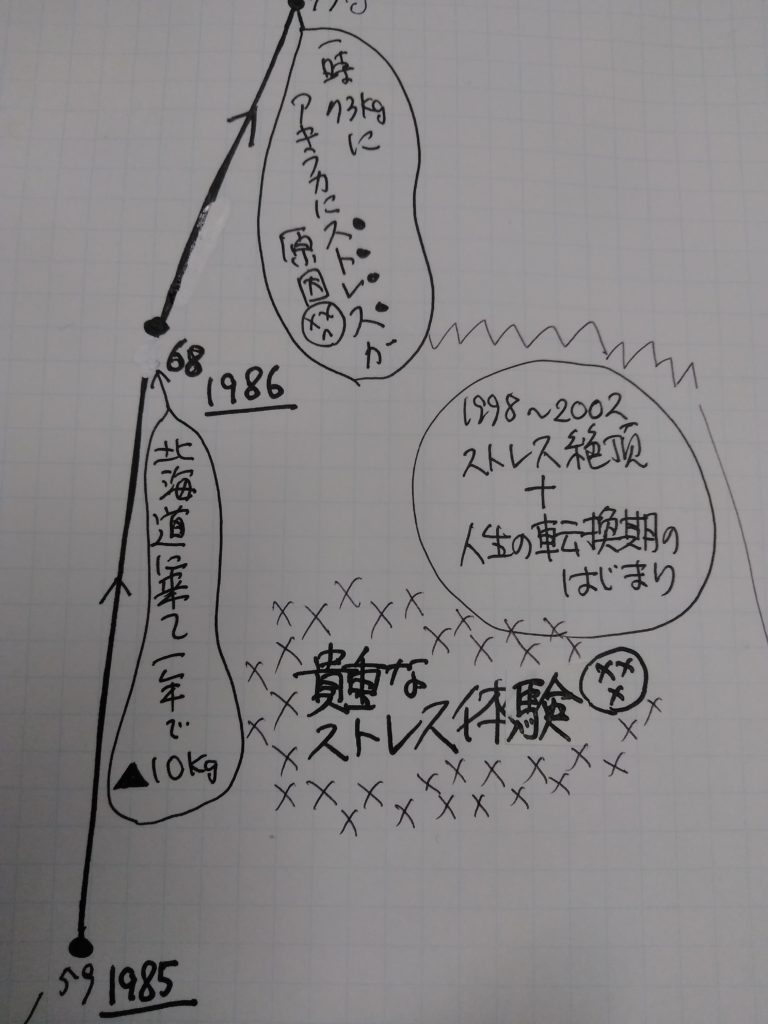 一時
73kgに
アキラカにストレスが
原因
68
1986
北海道に来て一年で
▲10kg
1998~2002
ストレス絶頂
+
人生の転換期の
はじまり
貴重な
ストレス体験
59
1985